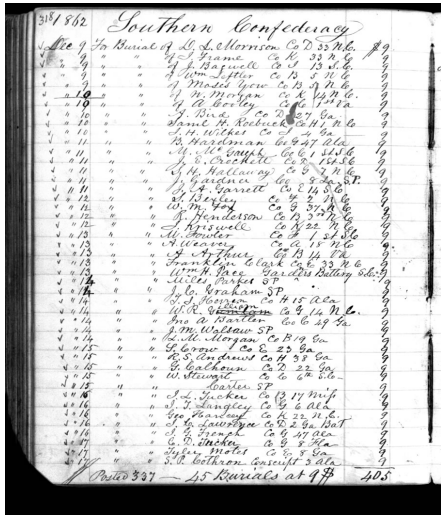 318 1862 Southern Confederacy
Dec 9 For Burial of D. L. Morrison Co D 33 N.C. $9
" 9 " " of Frame Co K 33 N.C. 9
" 9 " " of J Bagwell Co I 13 S.C. 9
9 " " of Wm Co B 5 N.C. 9
9 " " of Moses Yow Co B 5 N.C. 9
" 10 " " of N. Morgan Co K 14 N.C. 9
" 10 " " of A Cooley Co 1st Va 9
10 " " J. Bird Co D 27 Ga 9
10 " " Saml H. Roebuck Co H 1 N.C. 9
" 10 " " J. H. Wilkes Co 4 Ga 9
" 11 " " B. Hardman Co G 47 Ala 9
" 11 " " M. McGaugh Co C 1 St S.C. 9
" 11 " " E Crockett Co 1st S.C. 9
" 11 " " H. Hallaway Co G 7 N.C. 9
" 11 " " Gardner Co Ga S.P. 9
" 11 " " J. A. Garrett Co E 14 S.C. 9
" 12 " " S. Berley Co 2 N.C. 9
" 12 " " W. M. Fox Co G 37 N.C. 9
" 12 " " R. Henderson Co B 3rd N.C. 9
" 12 " " J. Kriswell Co K 22 N.C. 9
" 13 " " W. Fowler Co 1 St S.C. 9
" 13 " " A. Weaver Co A 18 N.C. 9
" 13 " " A Arthur Co B 14 Va 9
" 13 " " Franklin Clark Co E 33 N.C. 9
" 13 " " Wm H. Pace Battery S.C. 9
" 14 " " Miles Parker SP 9
" 14 " " J. C. Graham SP 9
" 14 " " L. J. Herron Co H 15 Ala 9
" 14 " " W. R. Co G 14 N.C. 9
" 14 " " Jno A Bartlen Co C 49 Ga 9
" 14 " " J. M. Walsaw SP 9
" 14 " " L. M. Morgan Co B 19 Ga 9
" 15 " " S. Crow Co E 23 Ga 9
" 15 " " R. S. Andrews Co H 38 Ga 9
" 15 " " G. Calhoun Co D 22 Ga 9
" 15 " " W. Stewart Co C 6th S.C. 9
" 15 " " Carter SP 9
" 15 " " J. L. Tucker Co B 17 Miss 9
" 16 " " J. T. Langley Co G 6 Ala 9
" 16 " " Geo Harvey Co K 22 N.C. 9
" 16 " " J. C. Lawrence Co D 2 Ga Bat 9
" 16 " " J. G. French Co G 47 Ala 9
" 17 " " C. D. Tucker Co G 8 Fla 9
" 17 " " Tyler Motes Co E 8 Ga 9
" 17 " " S. P. Cothron Conscript 3 Ala 9
Posted 337 — 45 Burials at 9$ 405